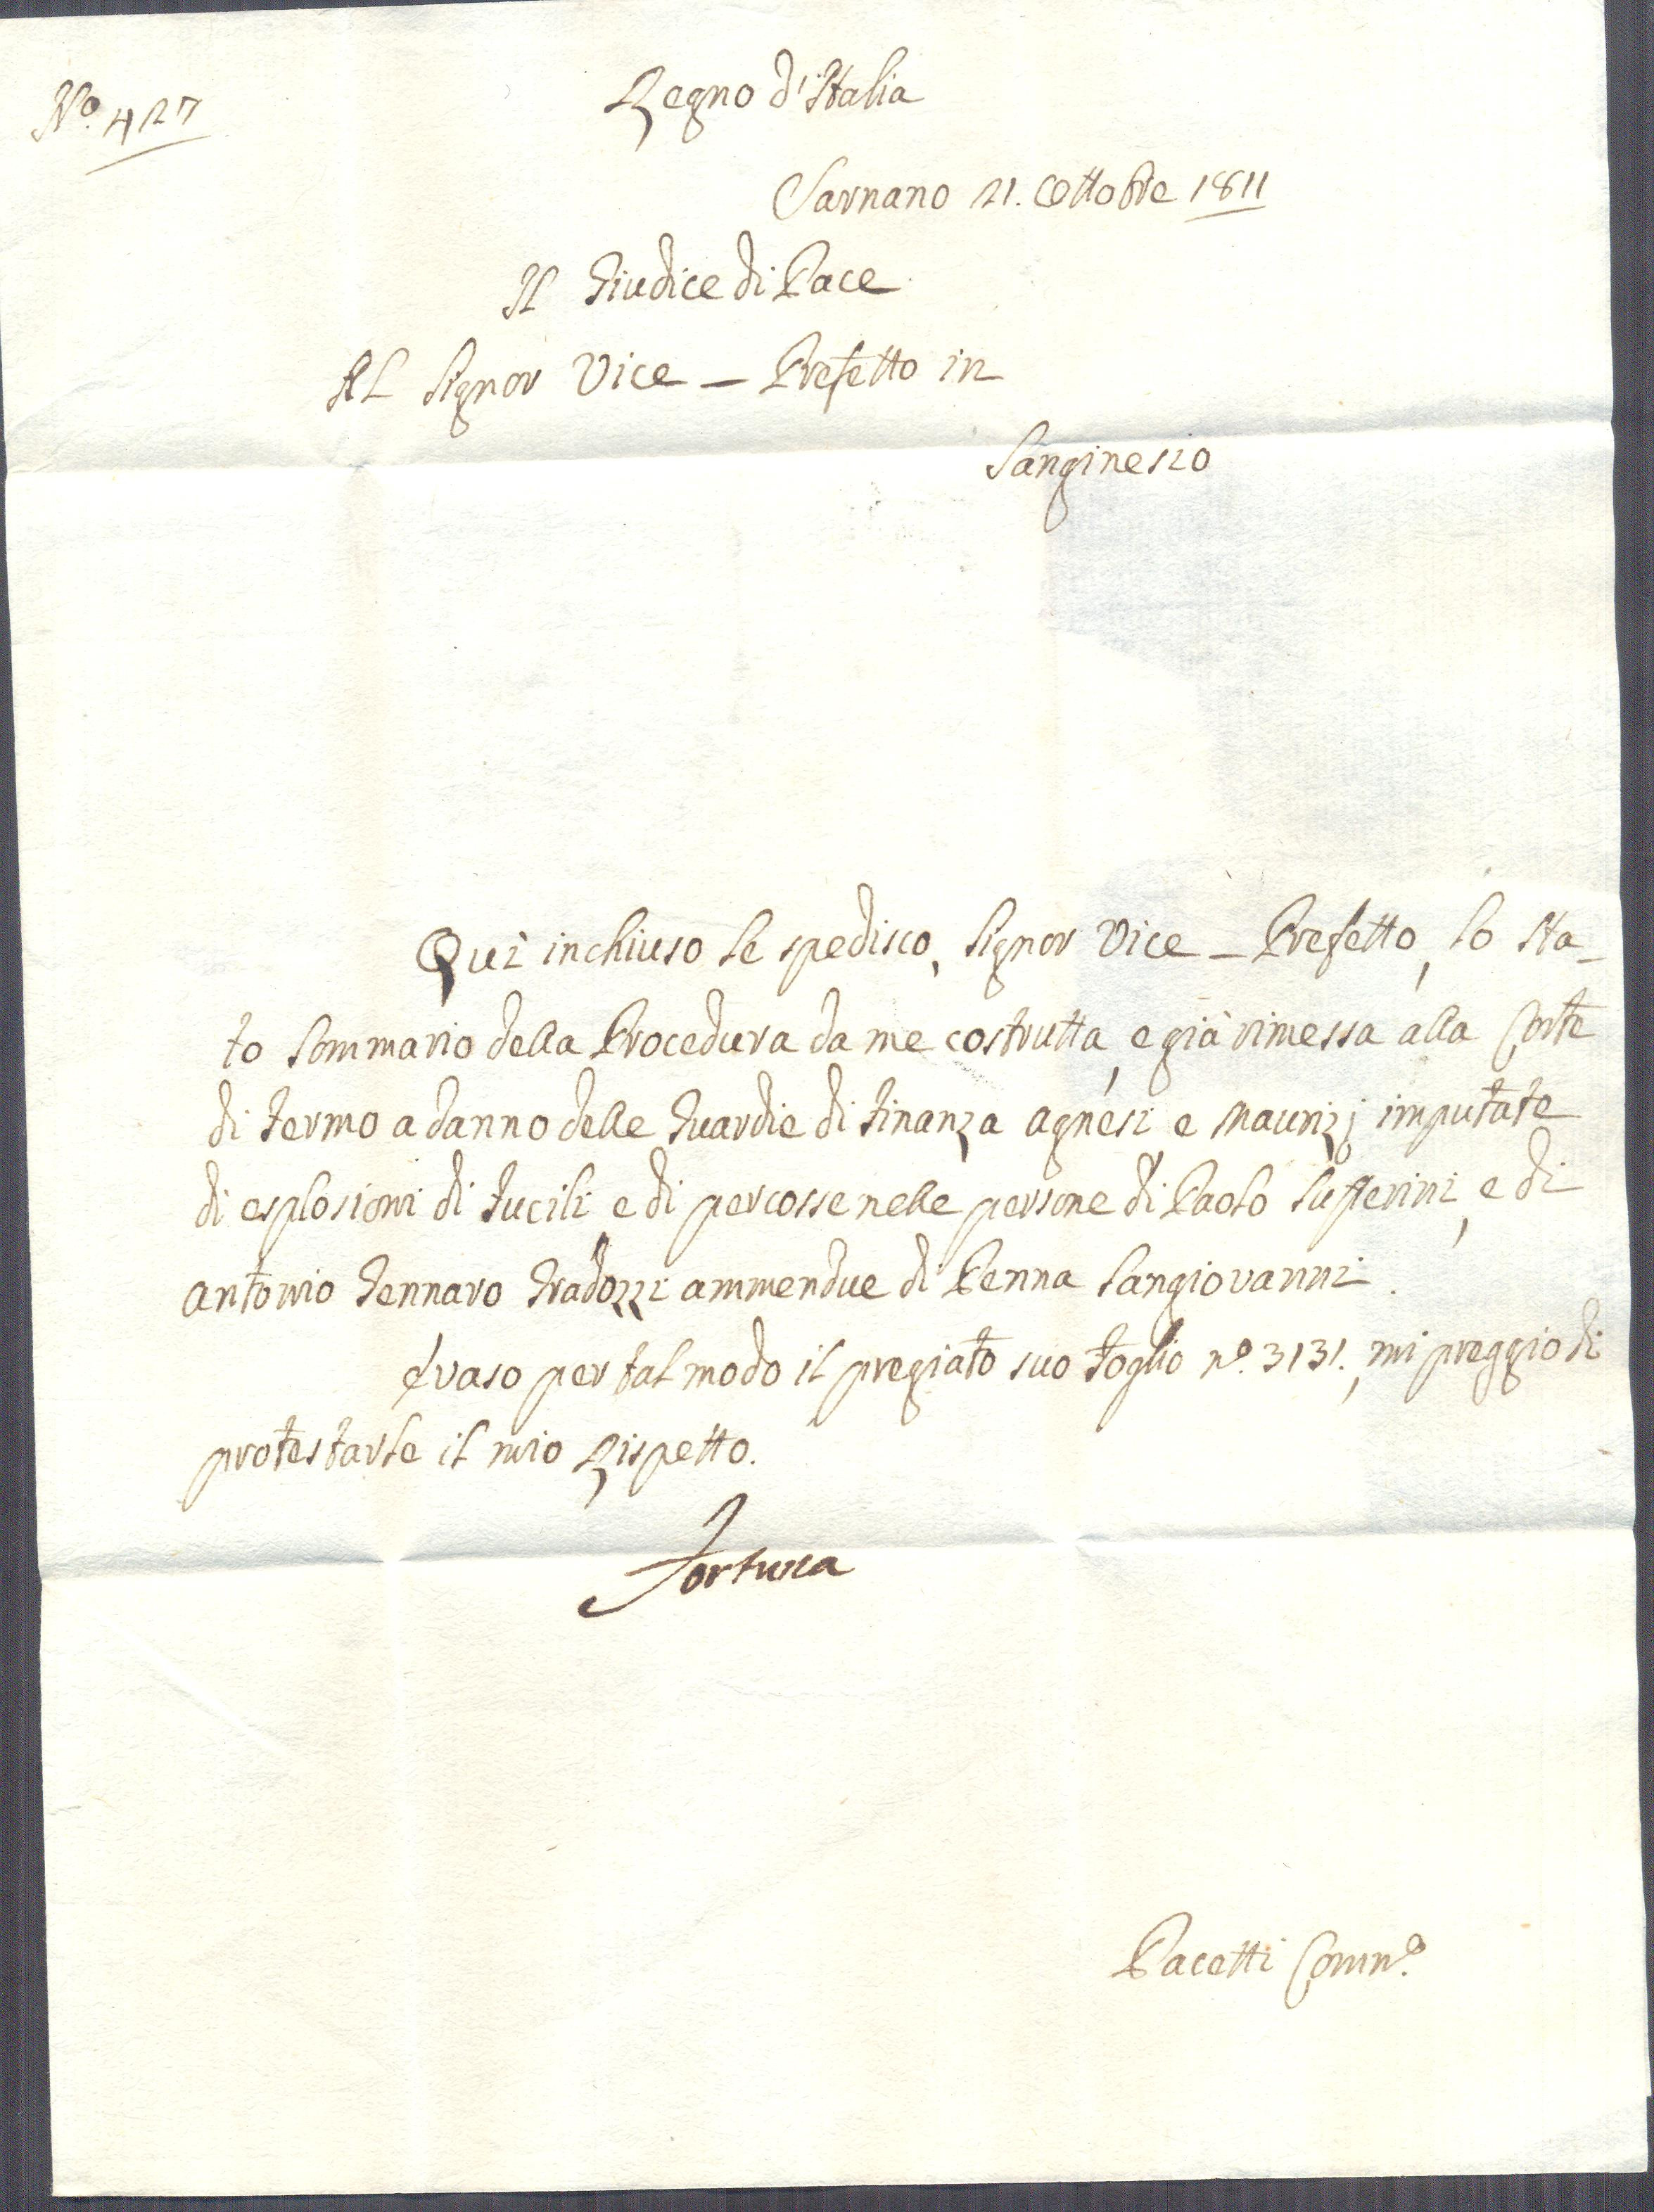 N.º 427
Regno d'Italia
Sarnano 21. Ottobre 1811
Il Giudice di Pace
Al Signor Vice - Prefetto in
Sanginesio
Quì inchiuso le spedisco, Signor Vice - Prefetto, lo Sta-
to Sommario della Procedura da me costrutta, e già rimessa alla Corte
di Fermo a danno delle Guardie di Finanza Agnesi e Maurizj imputate
di esplosioni di Fucili e di percosse nelle persone di Paolo, e di
Antonio Gennaro Gradozzi ammendue di Penna Sangiovanni.
Evaso per tal modo il pregiato suo Foglio nº. 3131., mi preggio di
protestarle il mio Rispetto.
Fortuna
Pacetti